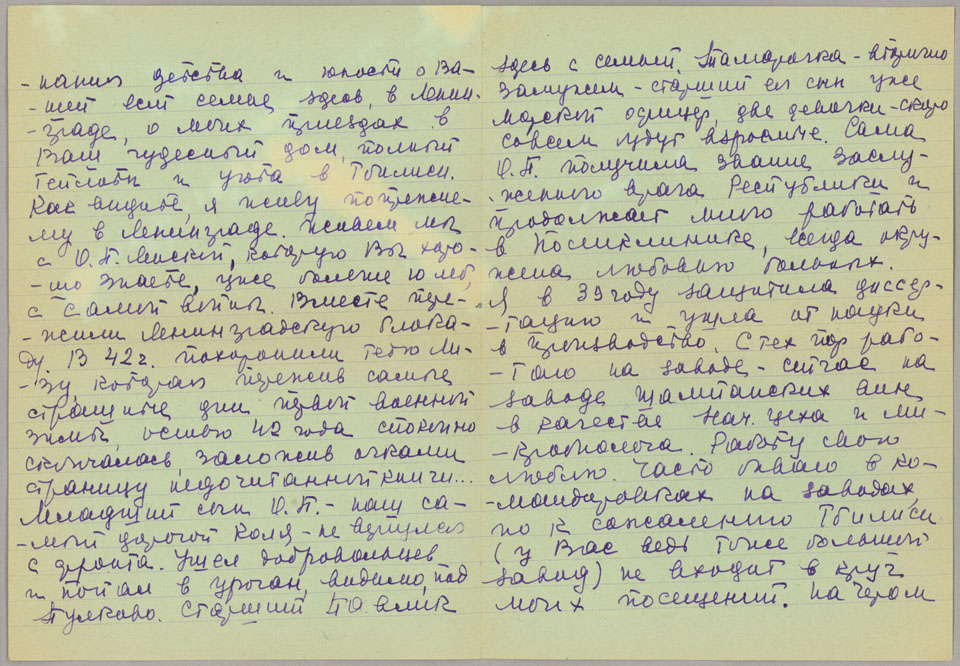 - наших детства и юности о Ва-
- шей всей семье здесь, в Ленин-
- граде, о моих приездах в
Ваш чудесный дом, полный
теплоты и уюта в Тбилиси.
Как видите, я живу попрежне-
му в Ленинграде. Живем мы
с О.П. Ленской, которую Вы хоро-
- шо знаете, уже больше 10 лет,
с самой войны. Вместе пере-
- жили Ленинградскую блока-
ду. В 42 г. похоронили тетю Ли-
- зу, которая пережив самые
страшные дни первой военной
зимы, осенью 42 года спокойно
скончалась, заложив очками
страницу недочитанной книги...
Младший сын О.П. - наш са-
- мый дорогой Коля - не вернулся
с фронта. Ушел добровольцем
и попал в ураган, видимо, под
Пулково. Старший Павлик
здесь с семьей, Тамарочка - вторично
замужем - старший ея сын уже
морской офицер, две девочки - скоро
совсем будут взрослые. Сама
О.П. получила звание Заслу-
- женного врача Республики и
продолжает много работать
в Поликлинике, всегда окру-
жена любовью больных.
Я в 39 году защитила диссер-
- тацию и ушла от науки
в производство. С тех пор рабо-
- таю на заводе - сейчас на
заводе Шампанских вин
в качестве Нач. цеха и ми-
- кробиолога. Работу свою
люблю. Часто бываю в ко-
- мандировках на заводах,
но к сожалению Тбилиси
(у Вас ведь тоже большой
завод) не входит в круг
моих посещений. На чером